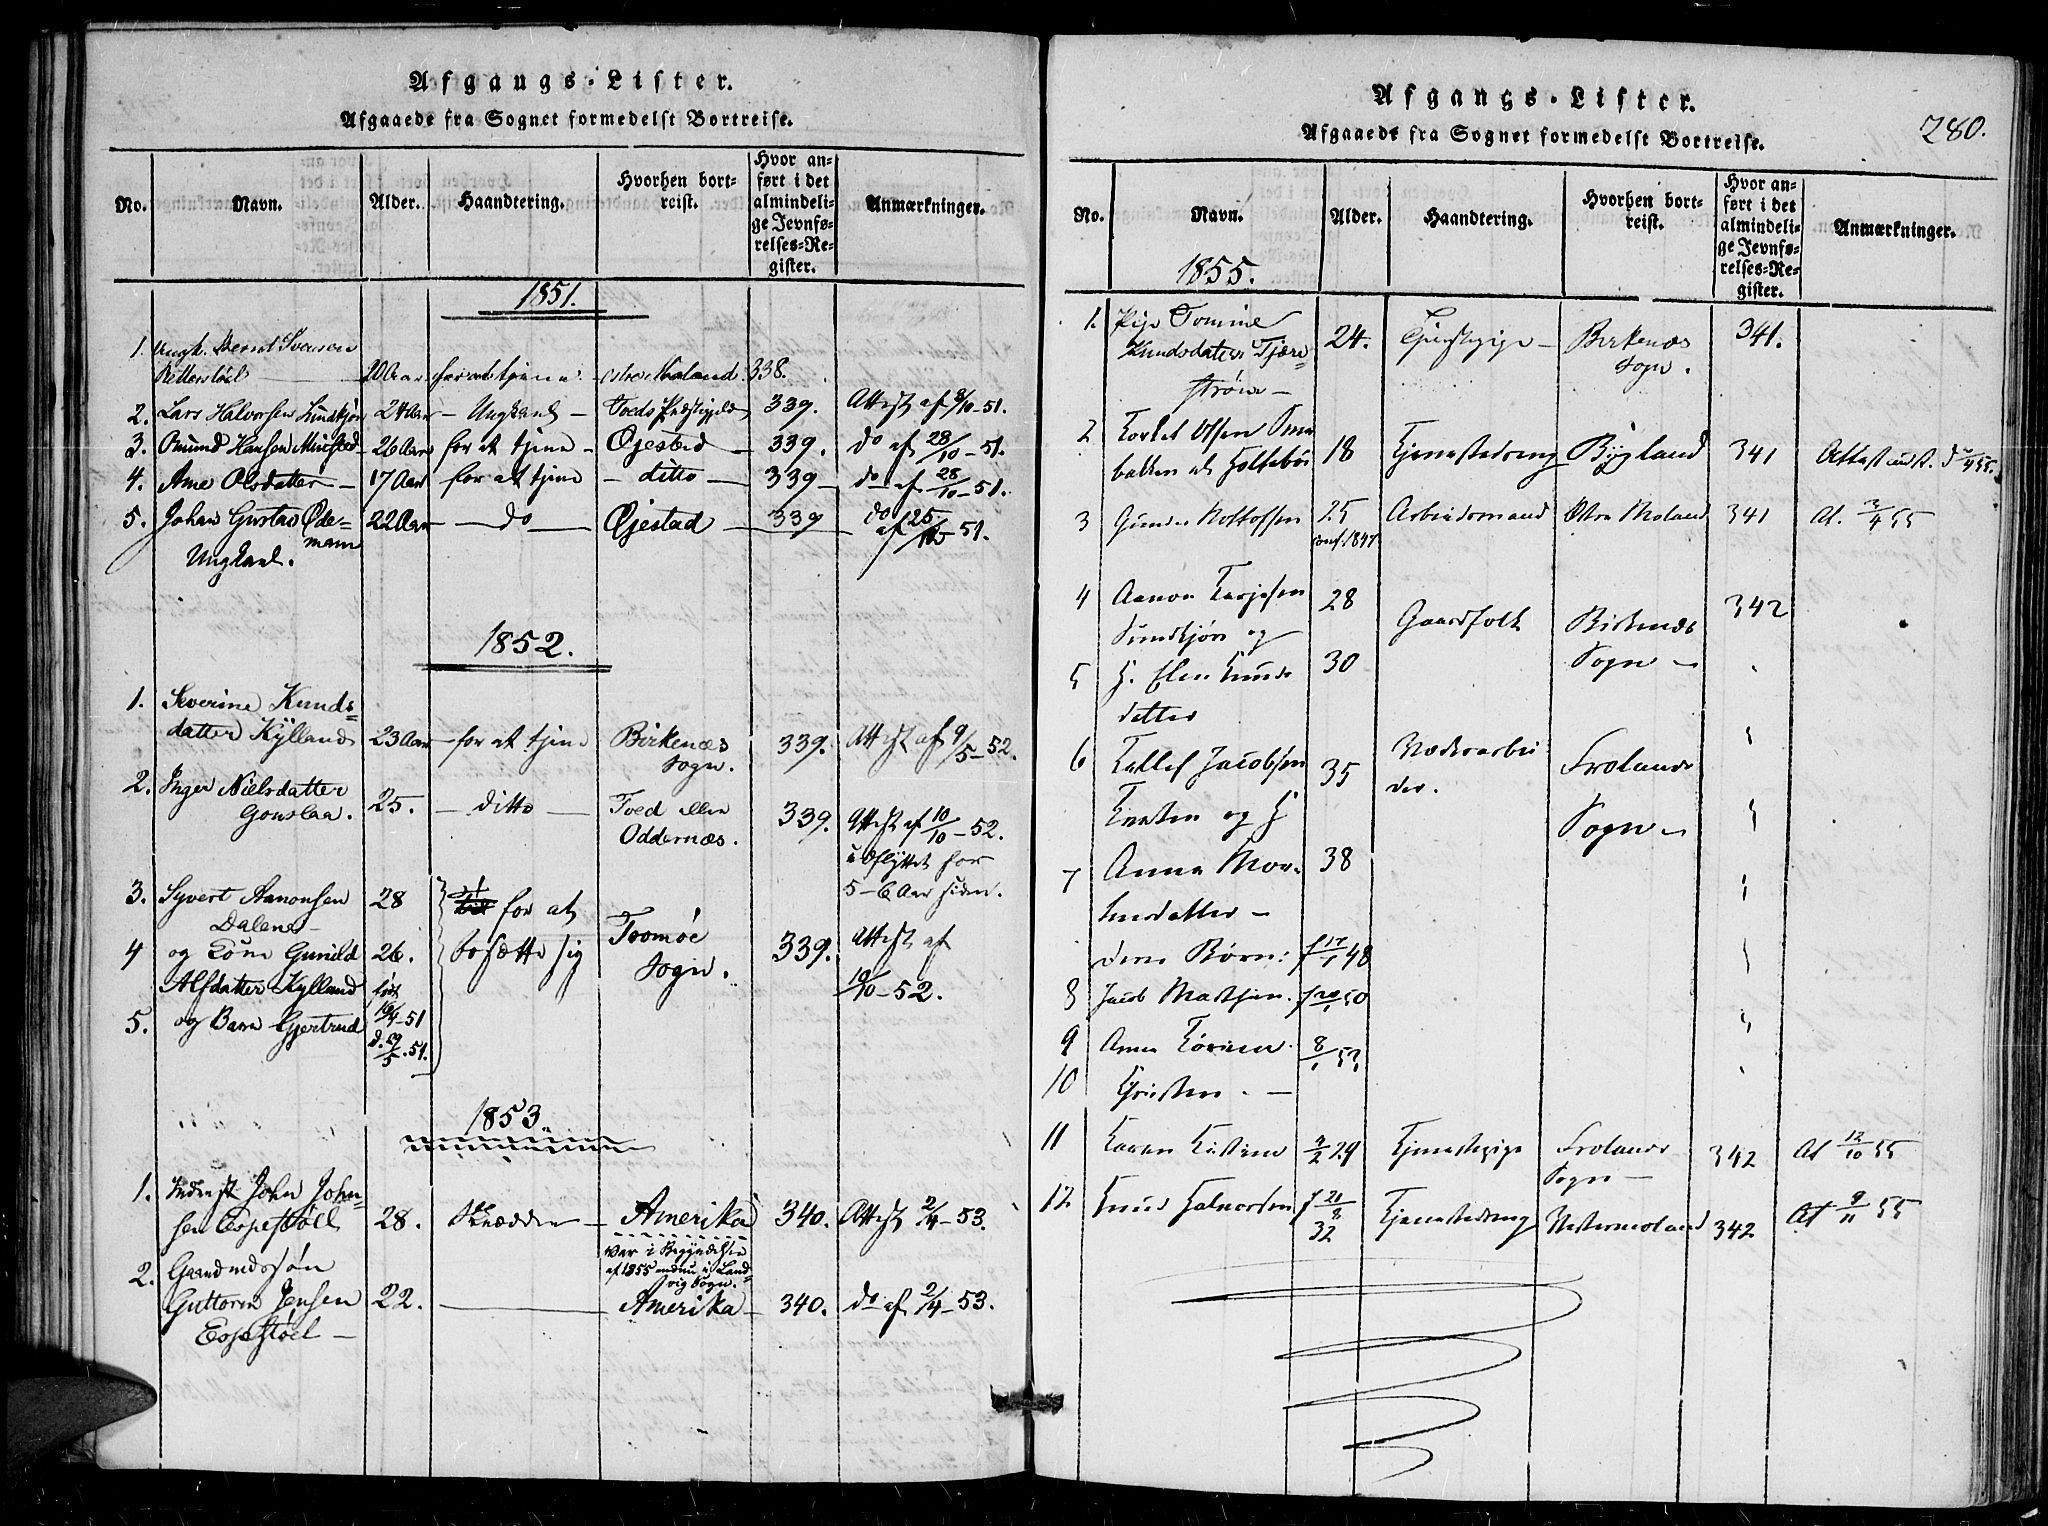 Afgangs-Lister.
Afgaaede fra Sognet formedelst Bortreise.
No. Navn. Alder. Haandtering. Hvorhen bortreist. Hvor anført i det almindelige Jevnførelses-Register. Anmærkninger.
1851.
1. Ungk. Bernt Svensen
Retterstöel 20 Aar for at tjene Østre Moland 338.
2. Lars Halvorsen Lindtjön 24 Aar – Ungkarl – Tveds Præstegjeld 339. Attest af 8/10-51.
3. Omund Hansen Mirestad 26 Aar for at tjene – Øjestad – 339. do af 28/10-51.
4. Ane Olsdatter – 17 Aar for at tjene – ditto – 339 – do af 28/10-51.
5. Johan Gustav Öde= 22 Aar – do – Øjestad – 339 do af 25/10-51.
mann
Ungkarl.
1852.
1. Severine Knuds=
datter Kÿlland 23 Aar – for at tjene Birkenæs 339. Attest af 9/5-52.
Sogn.
2. Inger Nielsdatter
Gonslaa. 25. – ditto – Tved eller 339. Attest af 10/10-52.
Oddernæs. udflyttet for
5–6 Aar siden.
3. Syvert Aanonsen 28 for at
Dalene
4 og Kone Gunild 26. bosætte sig Tromöe 339. Attest af
Alfdatter Kylland født Sogn. 10/10-52.
5. og Barn Gjertrud 19/4-51
d. 29/5.51.
1853.
1. Inderst John John=
sen Espestöll 28. Skrædder – Amerika 340. Attest 2/4-53.
var i Begyndelsen
af 1855 endnu i Land=
vig Sogn.
2. Gaardmandssøn
Guttorm Jensen 22. – Amerika – 340. do af 2/4-53.
Espestöel –
Afgangs-Lister.
Afgaaede fra Sognet formedelst Bortreise.
280.
No. Navn. Alder. Haandtering. Hvorhen bortreist. Hvor anført i det almindelige Jevnførelses-Register. Anmærkninger.
1855.
1. Pige Tomine
Knudsdatter Tjære= 24. Tjenstepige – Birkenæs 341.
strøm – Sogn.
2 Torkel Olsen
18 Tjenestedreng Bygland 341
3 Gunder 25 Arbeidsmand Østre Moland 341 At. 3/4 55
conf. 1847
4 Aanon Terjesen 28 Gaardfolk Birkenæs 342
og Sogn –
5 H. Elen Knuds 30
datter
6 Tellef Jacobsen 35 Froland
og H Sogn –
7 Anna Mor= 38
tensdatter –
deres Børn: f 17/1 48
8 Jacob Mathias. f 20/1 50
9 Anne 8/1 53
10 Kristen. –
11 Karen Kistine 4/2 29 Tjenestepige Froland 342 At 12/10 55
Sogn –
12 Knud Halvorsen f 21/8 32 Tjenestedreng Vestermoland 342 At 9/11 55